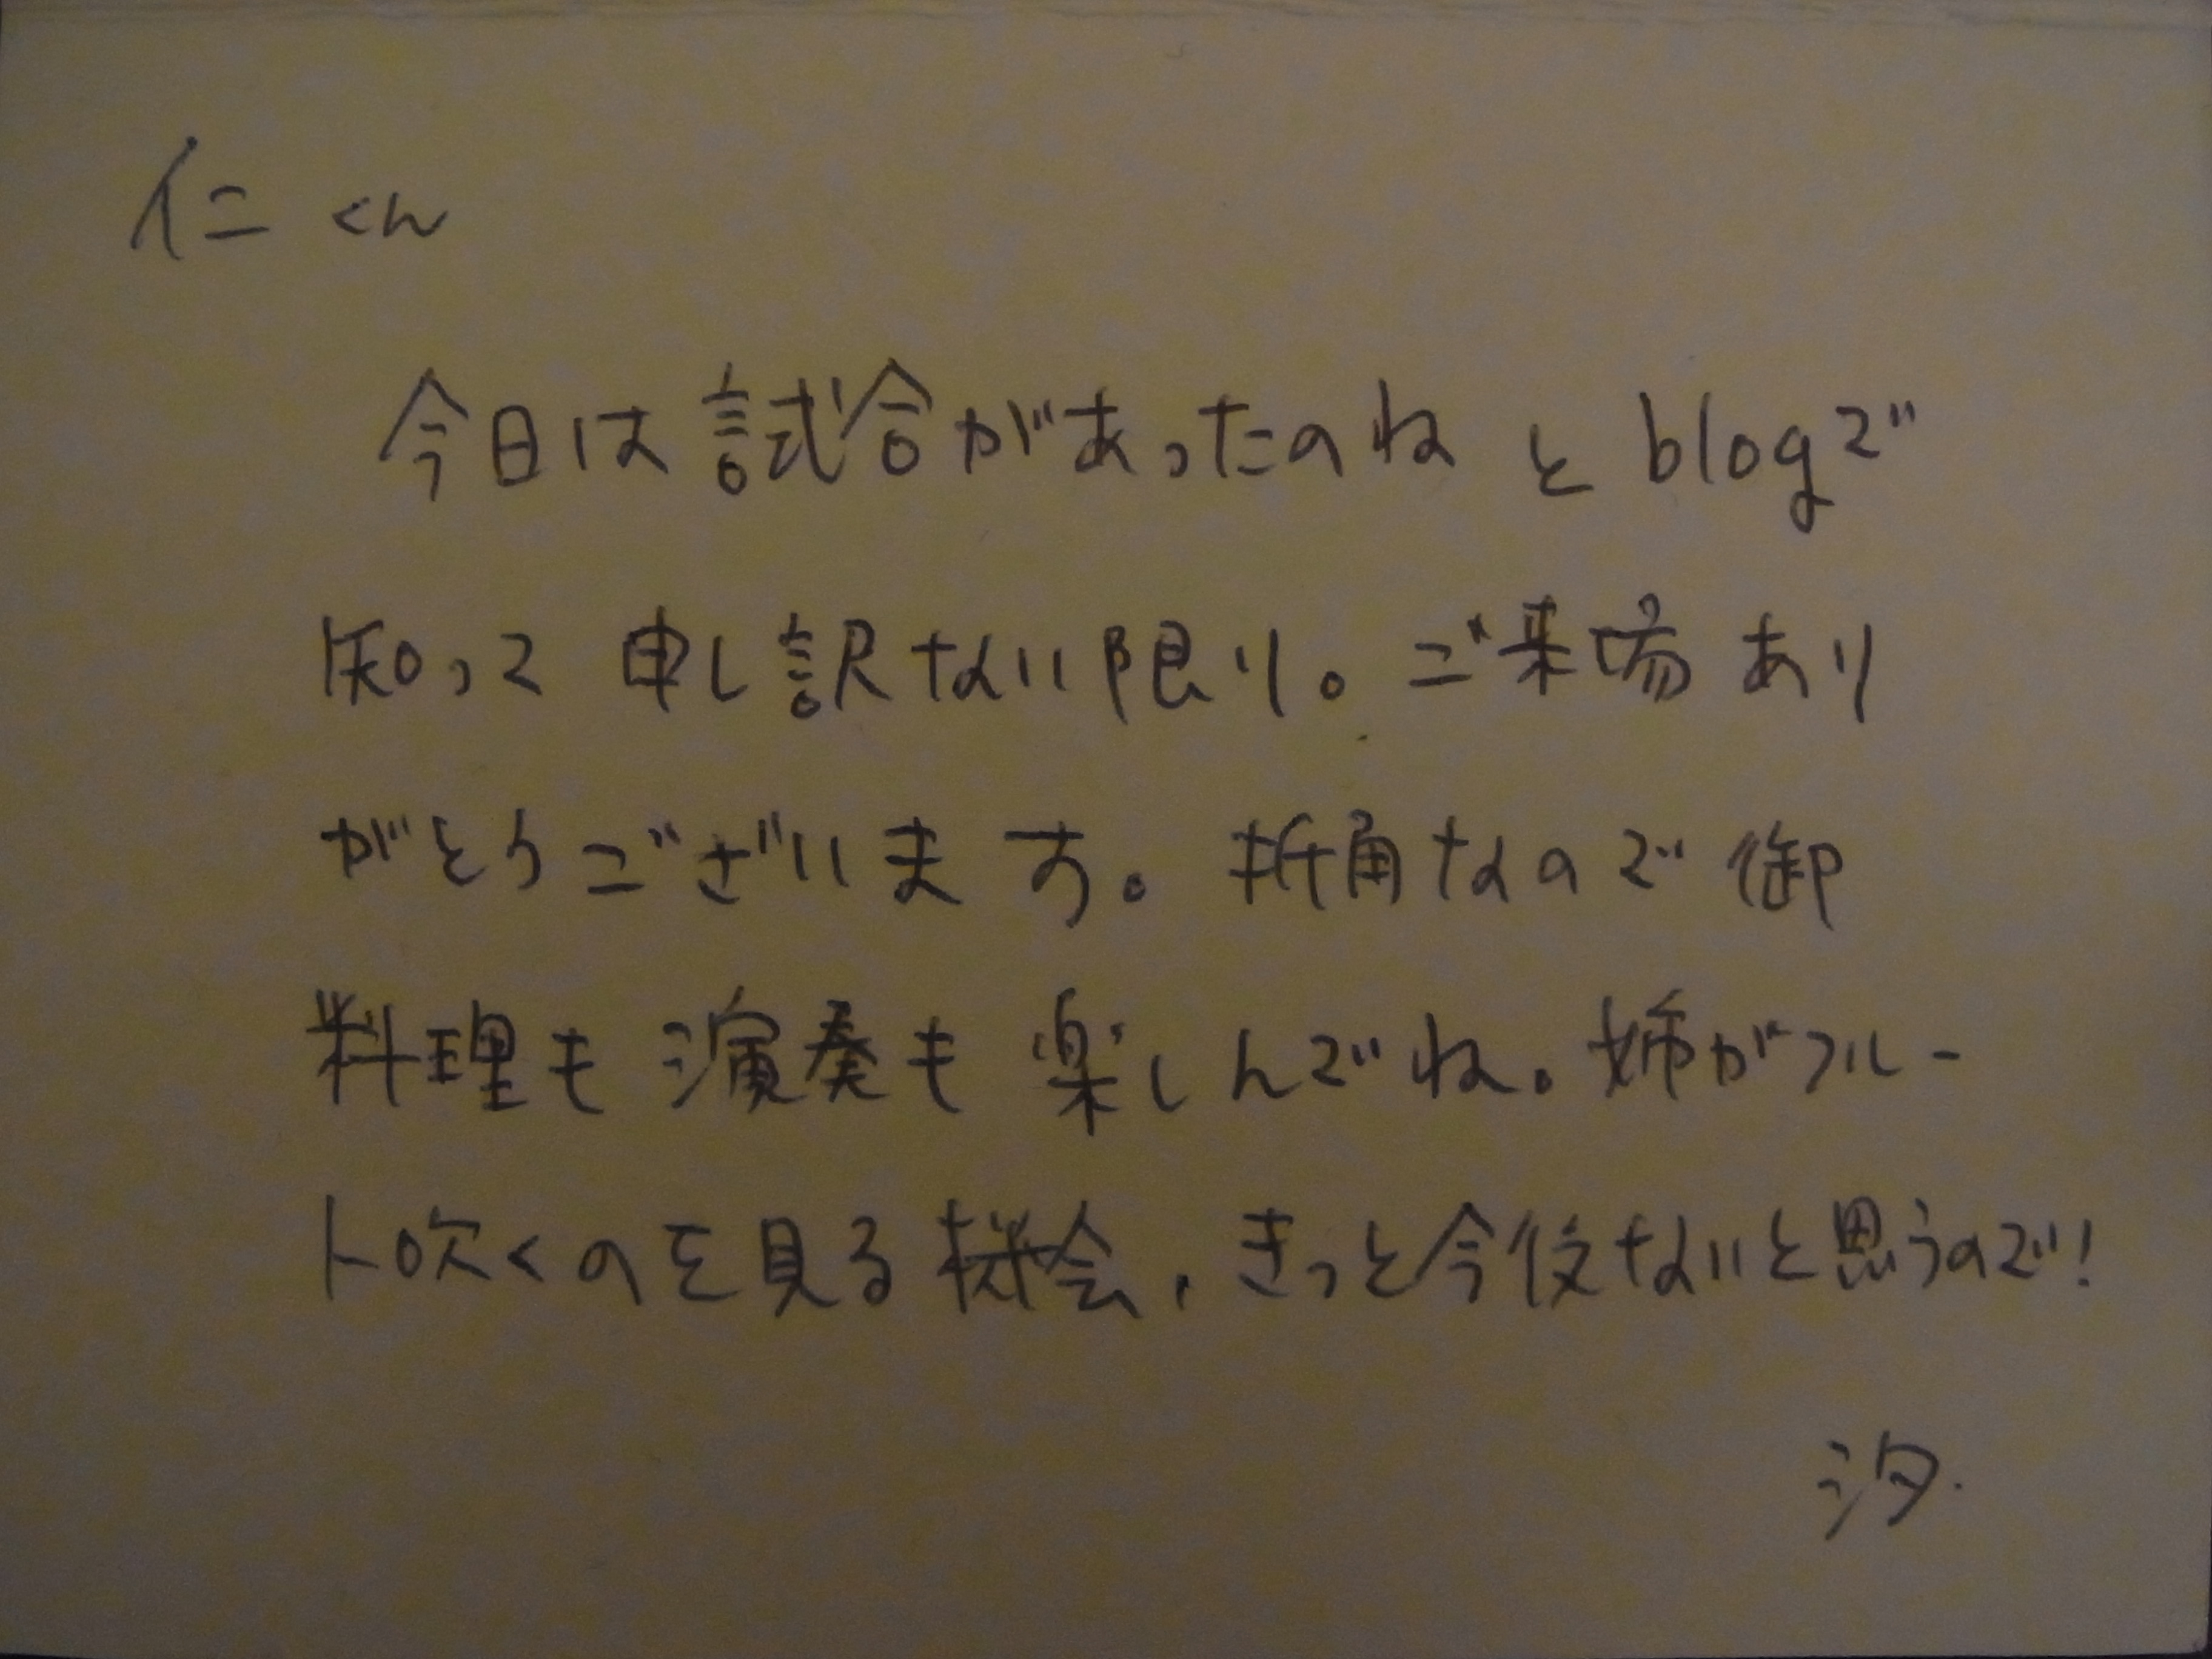 仁くん
今日は試合があったのねとblogで
知って申し訳ない限り。ご来場あり
がとうございます。折角なので御
料理も演奏も楽しんでね。姉がフルー
ト吹くのを見る機会、きっと今後ないと思うので!
汐.